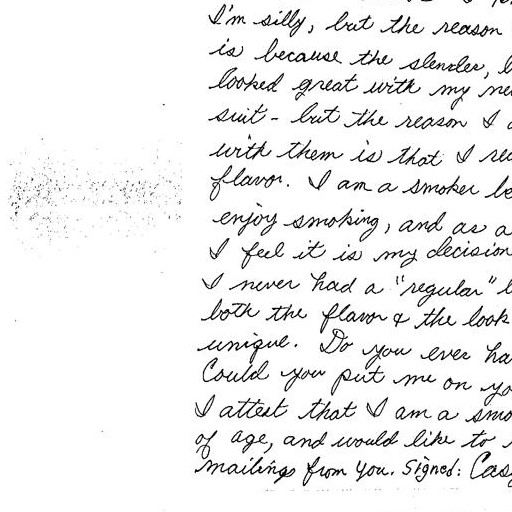 I'm silly, but the reason
is because the slender,
looked great with my
suit - but the reason I
with them is that I
flavor. I am a smoker
enjoy smoking, and as a
I feel it is my decision
I never had a "regular"
both the flavor & the look
unique. Do you ever
Could you put me on
I attest that I am a
of age, and would like to
mailings from you. Signed: